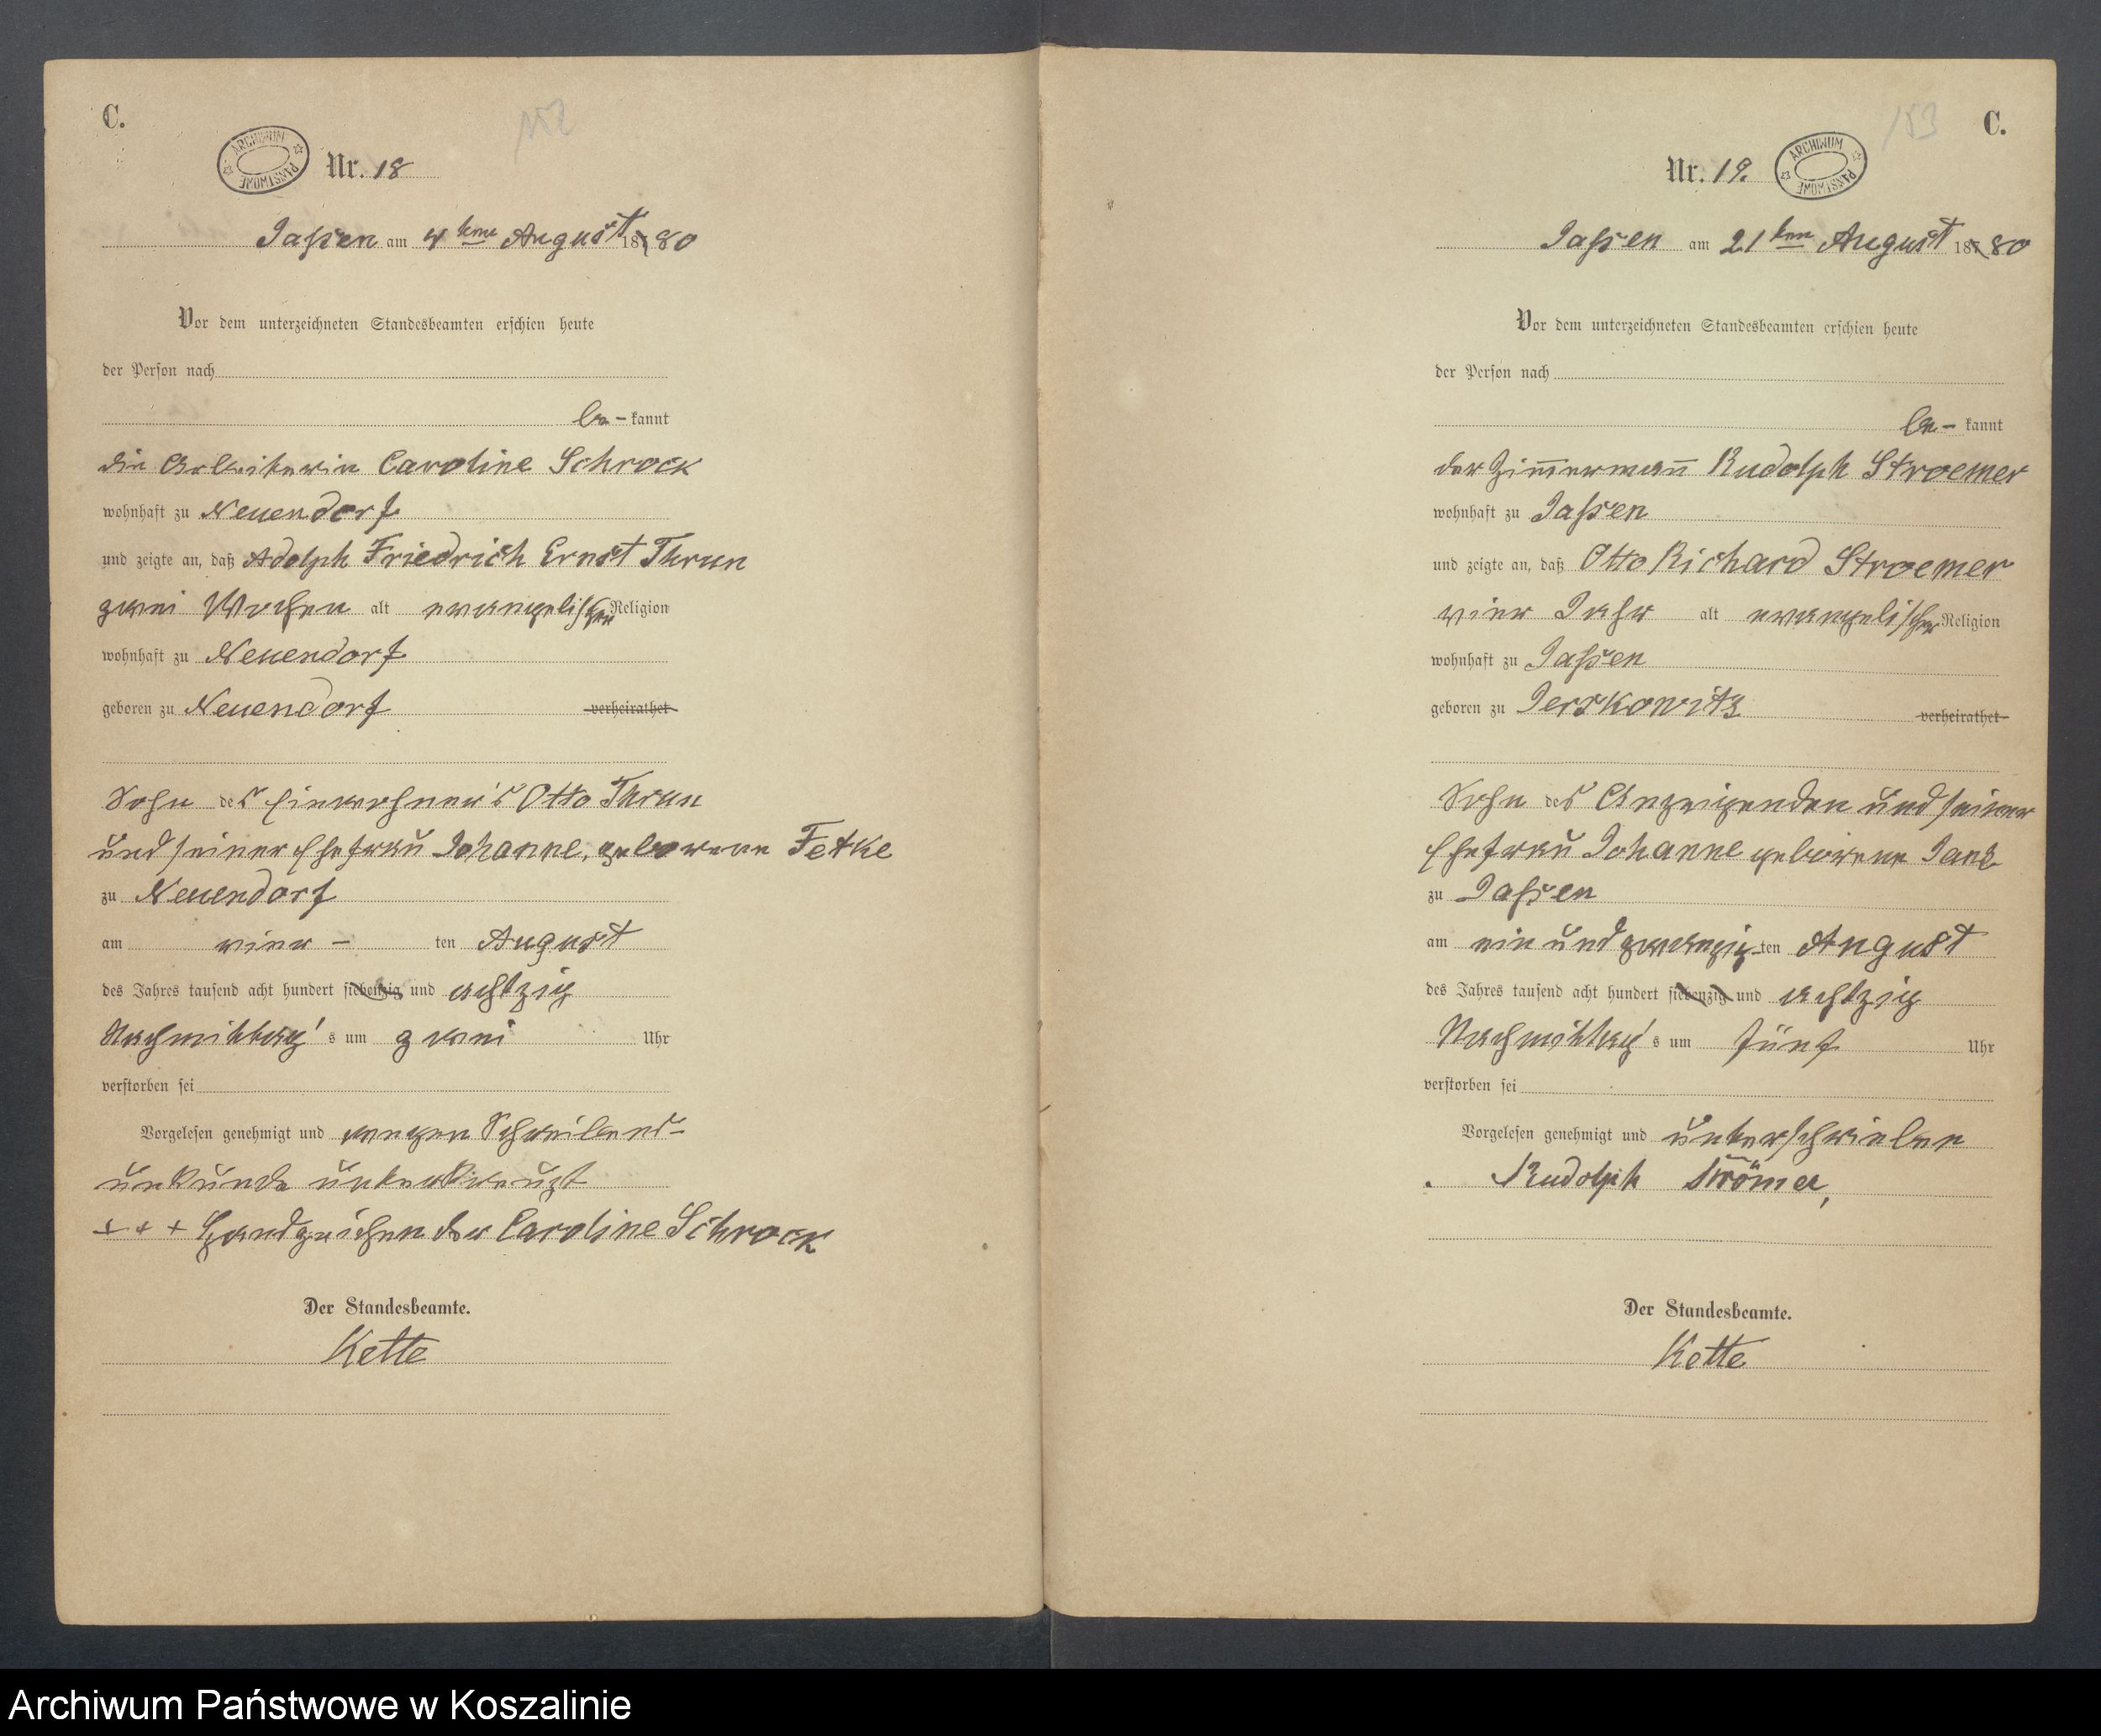 C.
152
ARCHIWUM PAŃSTWOWE
Nr. 18
Jassen am 4ten August 187 80
Vor dem unterzeichneten Standesbeamten erschien heute
der Person nach
be- kannt
die Arbeiterin Caroline Schrock
wohnhaft zu Neuendorf
und zeigte an, daß Adolph Friedrich Ernst Thrun
zwei Wochen alt evangelischer Religion
wohnhaft zu Neuendorf
geboren zu Neuendorf verheirathet
Sohn des Einwohner's Otto Thrun
und seiner Ehefrau Johanne, geborene Fetke
zu Neuendorf
am vier - ten August
des Jahres tausend acht hundert siebenzig und achtzig
Nachmittag's um zwei Uhr
verstorben sei
Vorgelesen genehmigt und wegen Schreibens-
unkunde unterkreuzt
+ + + Handzeichen der Caroline Schrock
Der Standesbeamte.
Kette
153
C.
Nr. 19.
ARCHIWUM PAŃSTWOWE
Jassen am 21ten August 187 80
Vor dem unterzeichneten Standesbeamten erschien heute
der Person nach
be- kannt
der Zimmermann Rudolph Stroemer
wohnhaft zu Jassen
und zeigte an, daß Otto Richard Stroemer
vier Jahr alt evangelischer Religion
wohnhaft zu Jassen
geboren zu Jerskowitz verheirathet
Sohn des Anzeigenden und seiner
Ehefrau Johanne geborene
zu Jassen
am ein und zwanzig-ten August
des Jahres tausend acht hundert siebenzig und achtzig
Nachmittag's um fünf Uhr
verstorben sei
Vorgelesen genehmigt und unterschrieben
Rudolph Strömer,
Der Standesbeamte.
Kette
Archiwum Państwowe w Koszalinie